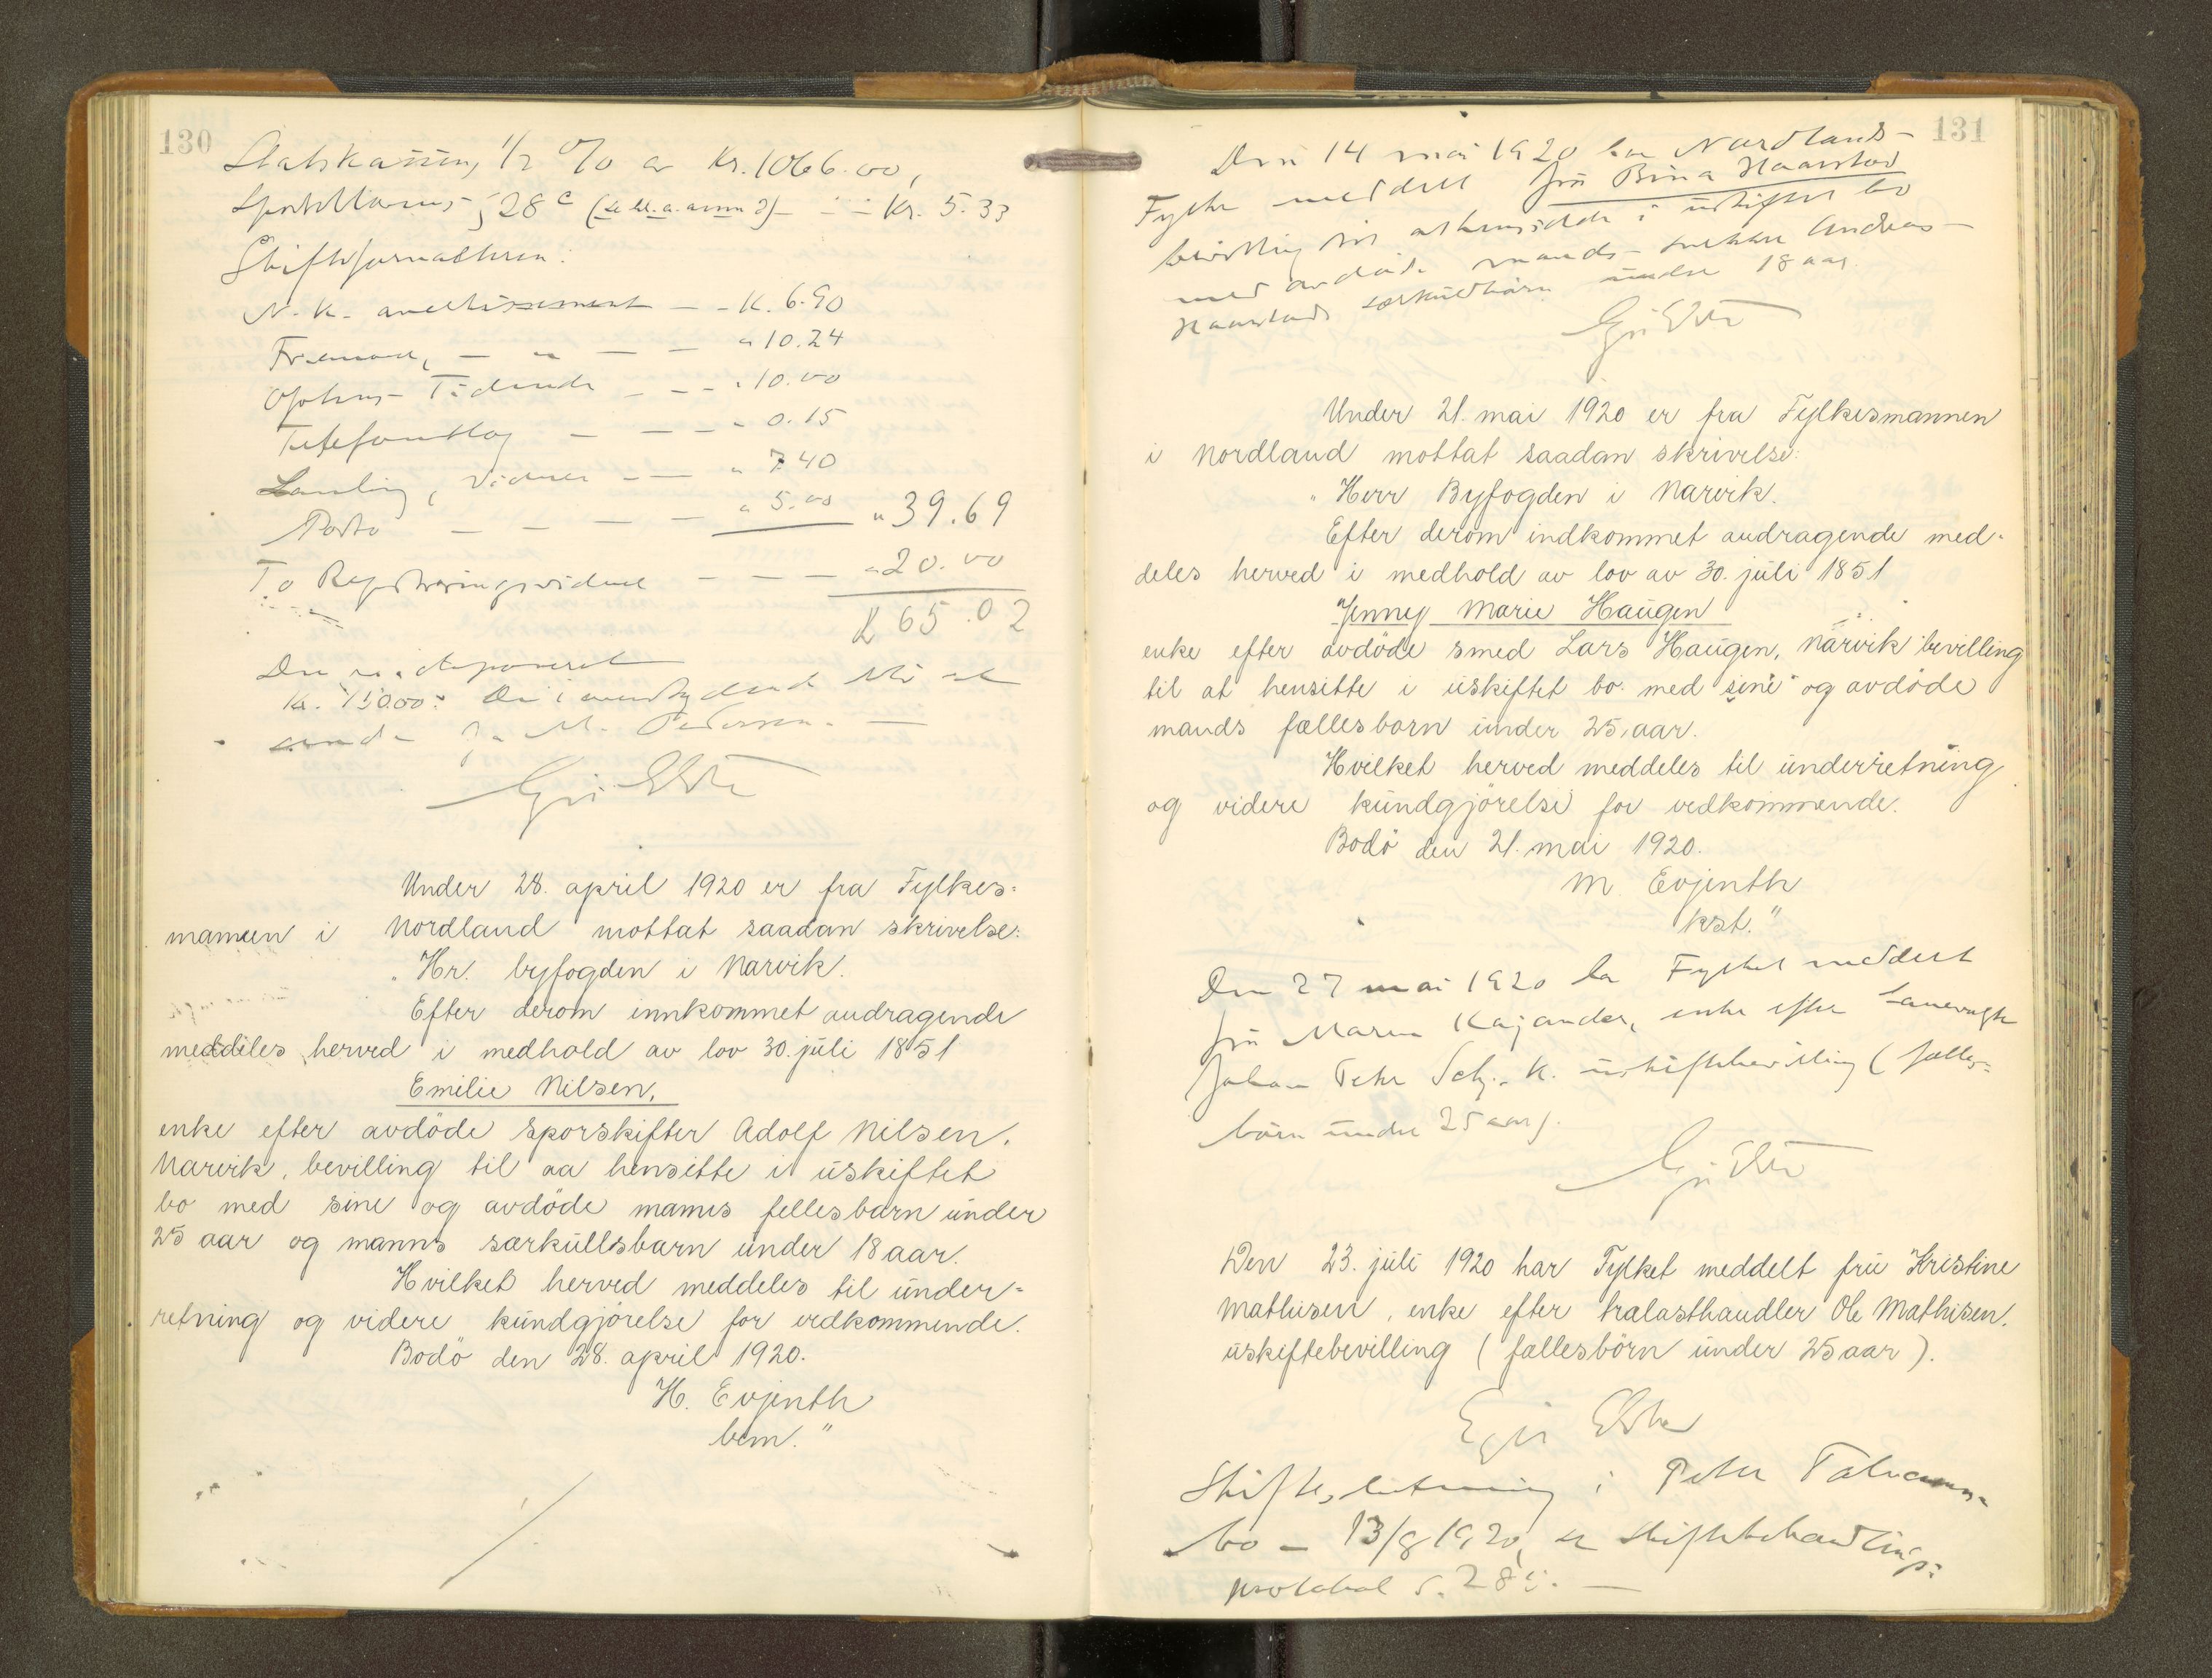 130
Statskassen, 1/2 % av Kr. 1066.00,
§ 28 c - Kr. 5.33
N. K. avertissement - - K. 6.90
Fremover, - " - - " 10.24
Ofotens Tidende - - " 10.00
- - - " 0.15
, vidner - - " 7.40
Porto - - - - " 5.00 " 39.69
To Registreringsvidner - - - " 20.00
K 65.02
Der er deponeret
Kr.
M. Pedersen. -
Under 28. april 1920 er fra Fylkes-
mannen i Nordland mottat saadan skrivelse:
"Hr. byfogden i Narvik.
Efter derom innkommet andragende
meddeles herved i medhold av lov 30. juli 1851
Emilie Nilsen,
enke efter avdöde sporskifter Adolf Nilsen,
Narvik, bevilling til aa hensitte i uskiftet
bo med sine og avdöde manns fellesbarn under
25 aar og manns særkullsbarn under 18 aar.
Hvilket herved meddeles til under-
retning og videre kundgjörelse for vedkommende.
Bodö den 28. april 1920.
H. Evjenth
bem."
131
Den 14 mai 1920 har Nordlands
Fylke meddelt fru Bina Haarstad
bevilling til at hensidde i uskiftet bo
med avdøde mands Andreas
Haarstads særkuldbarn under 18 aar.
Under 21. mai 1920 er fra Fylkesmannen
i Nordland mottat saadan skrivelse:
"Herr Byfogden i Narvik.
Efter derom indkommet andragende med-
deles herved i medhold av lov av 30. juli 1851
Jenny Marie Haugen
enke efter avdöde smed Lars Haugen, Narvik bevilling
til at hensitte i uskiftet bo med sine og avdöde
mands fællesbarn under 25 aar.
Hvilket herved meddeles til underretning
og videre kundgjörelse for vedkommende.
Bodö den 21. mai 1920.
M. Evjenth
kst."
Den 27 mai 1920 har Fylket meddelt
fru Maren Kajander, enke efter banevogter
Johan Peter K. uskiftebevilling (fælles-
børn under 25 aar).
Den 23. juli 1920 har Fylket meddelt fru Kristine
Mathisen, enke efter trælasthandler Ole Mathisen,
uskiftebevilling (fællesbörn under 25 aar).
Egil Elster
Skifteslutning i Peter
bo - 13/8 1920, se skiftebehandlings-
protokol s. 285. -